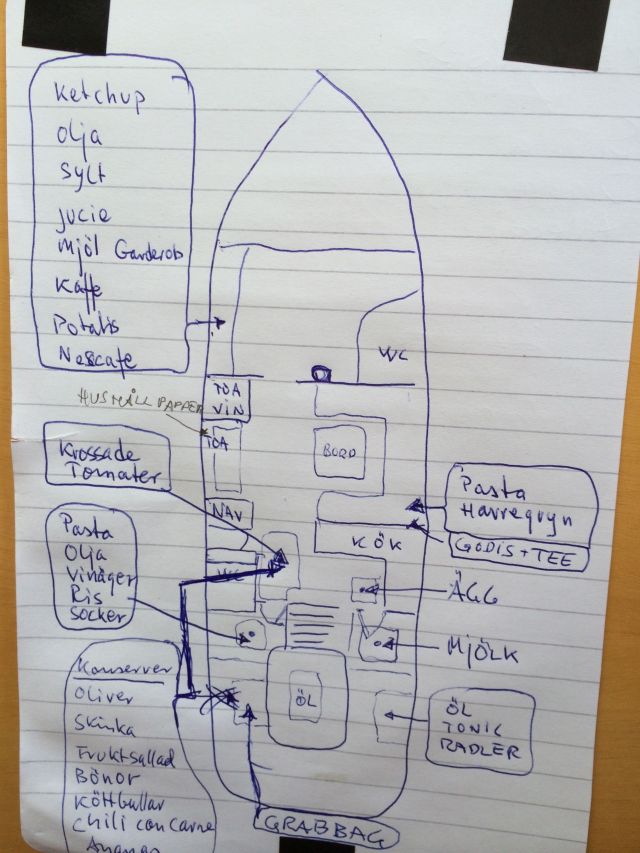 Ketchup
Olja
Sylt
Jucie
Mjöl Garderob
Kaffe
Potatis
Nescafe
WC
TOA
VIN
HUSHÅLLPAPPER
TOA
BORD
Krossade
Tomater
NAV
KÖK
Pasta
Havregryn
GODIS+TEE
Pasta
Olja
Vinäger
Ris
Socker
ÄGG
MJÖLK
Konserver
Oliver
Skinka
Fruktsallad
Bönor
Köttbullar
Chili con carne
Ananas
ÖL
ÖL
TONIC
RADLER
GRABBAG